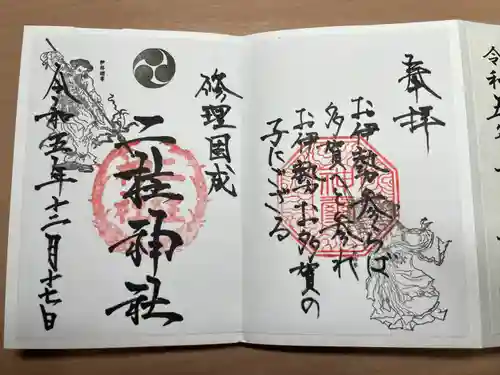 令和五年
奉拝
お伊勢参らば
多賀へも参れ
お伊勢お多賀の
子にござる
修理固成
二社神社
令和五年十二月十七日